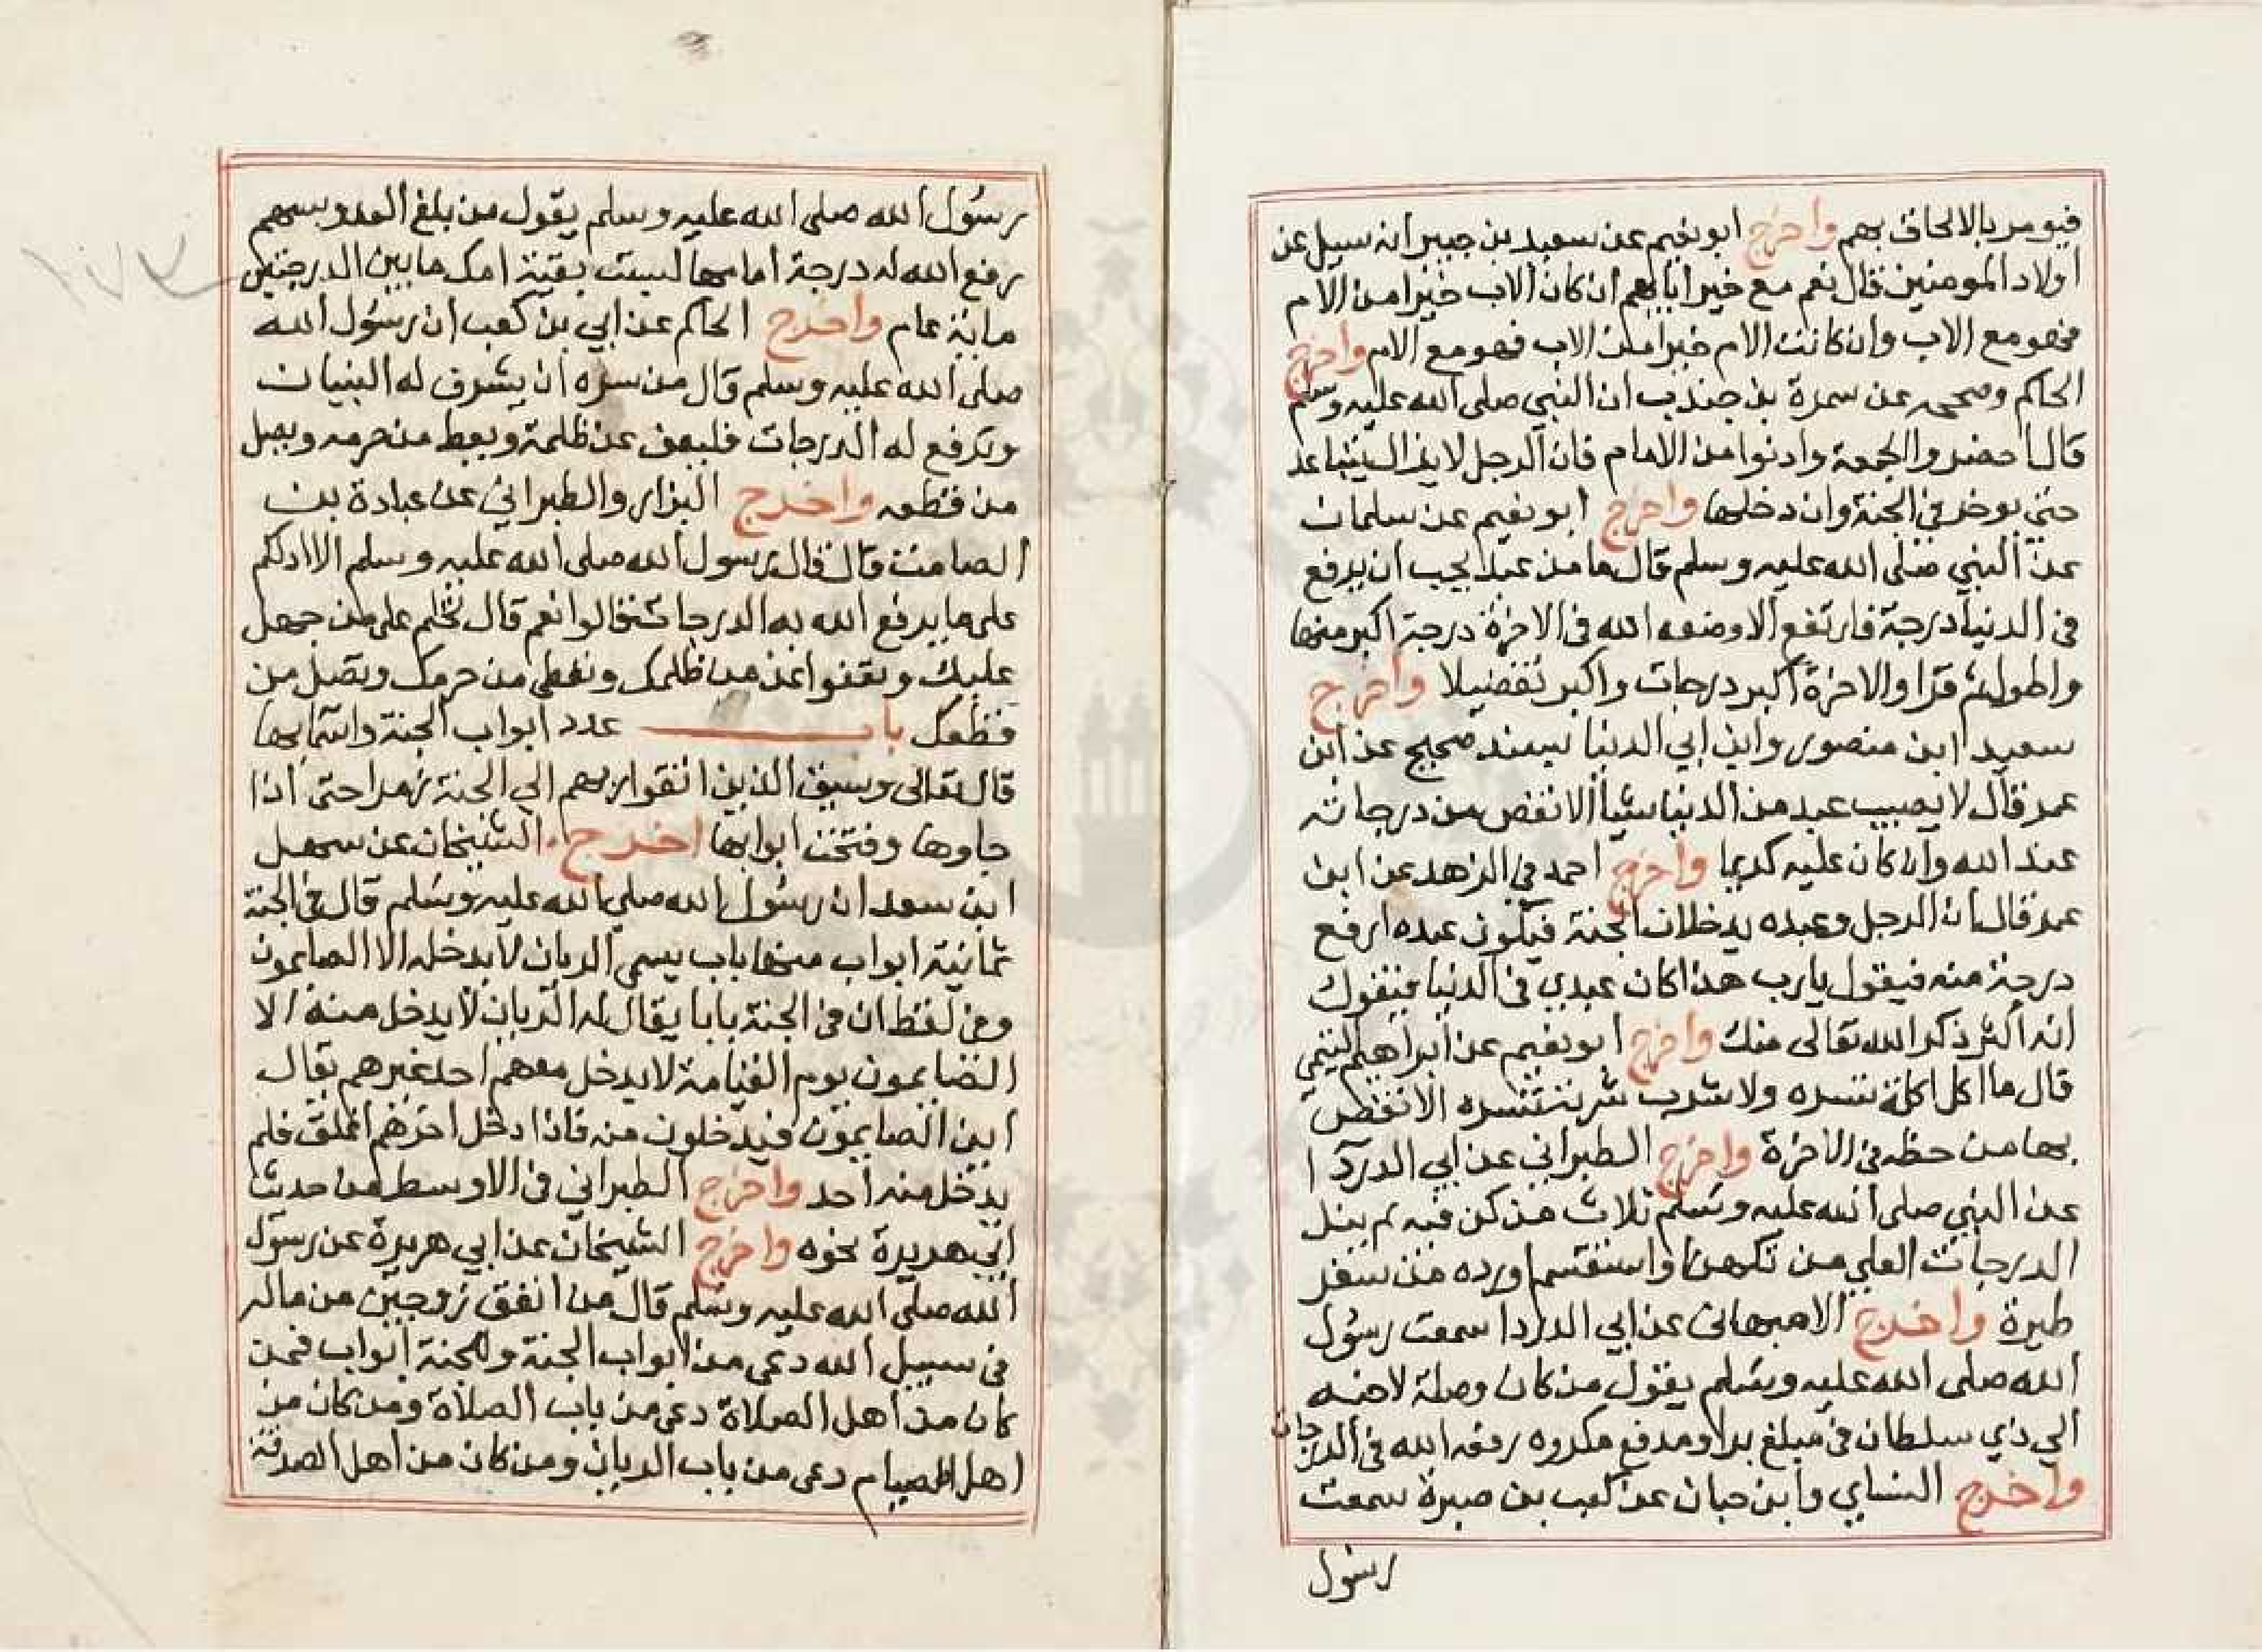 فيومر بالالحاق بهم واخرج ابو نعيم عن سعيد بن جبير انه سيل عن
اولاد المومنين قال نعم مع خير ابايهم ان كان الاب خيرا من الام
فهو مع الاب وان كانت الام خيرا من الاب فهو مع الام واخرج
الحاكم وصححه عن سمرة بن جندب ان النبي صلى الله عليه وسلم
قال احضروا الجمعة وادنوا من الامام فان الرجل لا يزال يتباعد
حتى يوخر في الجنة وان دخلها واخرج ابو نعيم عن سلمان
عن النبي صلى الله عليه وسلم قال ما من عبد يحب ان يرفع
في الدنيا درجة فارتفع الا وضعه الله في الاخرة درجة اكبر منها
واطول ثم قرا والاخرة اكبر درجات واكبر تفضيلا واخرج
سعيد ابن منصور وابن ابي الدنيا بسند صحيح عن ابن
عمر قال لا يصيب عبد من الدنيا شيا الا نقص من درجاته
عند الله وان كان عليه كريما واخرج احمد في الزهد عن ابن
عمر قال ان الرجل وعبده يدخلان الجنة فيكون عبده ارفع
درجة منه فيقول يا رب هذا كان عبدي في الدنيا فيقول
انه اكثر ذكرا لله تعالى منك واخرج ابو نعيم عن ابراهيم التيمي
قال ما اكل اكلة تسره ولا شرب شربة تسره الا نقص
بها من حظه في الاخرة واخرج الطبراني عن ابي الدردا
عن النبي صلى الله عليه وسلم ثلاث من كن فيه لم ينل
الدرجات العلى من تكهن او استقسم او رده من سفر
طيرة واخرج الاصبهانى عن ابي الدردا سمعت رسول
الله صلى الله عليه وسلم يقول من كان وصلة لاخيه
الى ذي سلطان في مبلغ بر او مدفع مكروه رفعه الله في الدرجات
واخرج النساي وابن حبان عن كعب بن صبرة سمعت
رسول
رسول الله صلى الله عليه وسلم يقول من بلغ العدو بسهم
رفع الله له درجة اما انها ليست بعتبة امك ما بين الدرجتين
مائة عام واخرج الحاكم عن ابي بن كعب ان رسول الله
صلى الله عليه وسلم قال من سره ان يشرف له البنيان
وترفع له الدرجات فليعف عن ظلمه ويعط من حرمه ويصل
من قطعه واخرج البزار والطبراني عن عبادة بن
الصامت قال قال رسول الله صلى الله عليه وسلم الا ادلكم
على ما يرفع الله به الدرجات قالوا نعم قال تحلم على من جهل
عليك وتعفوا عن من ظلمك وتعطى من حرمك وتصل من
قطعك باب عدد ابواب الجنة واسمايها
قال تعالى وسيق الذين اتقوا ربهم الى الجنة زمرا حتى اذا
جاوها وفتحت ابوابها اخرج الشيخان عن سهل
ابن سعد ان رسول الله صلى الله عليه وسلم قال في الجنة
ثمانية ابواب منها باب يسمى الريان لا يدخله الا الصايمون
وفي لفظ ان في الجنة بابا يقال له الريان لا يدخل منه الا
الصايمون يوم القيامة لا يدخل معهم احد غيرهم يقال
اين الصايمون فيدخلون منه فاذا دخل اخرهم اغلق فلم
يدخل منه احد واخرج الطبراني في الاوسط من حديث
ابي هريرة نحوه واخرج الشيخان عن ابي هريرة عن رسول
الله صلى الله عليه وسلم قال من انفق زوجين من ماله
في سبيل الله دعي من ابواب الجنة وللجنة ابواب فمن
كان من اهل الصلاة دعى من باب الصلاة ومن كان من
اهل الصيام دعى من باب الريان ومن كان من اهل الصدقة